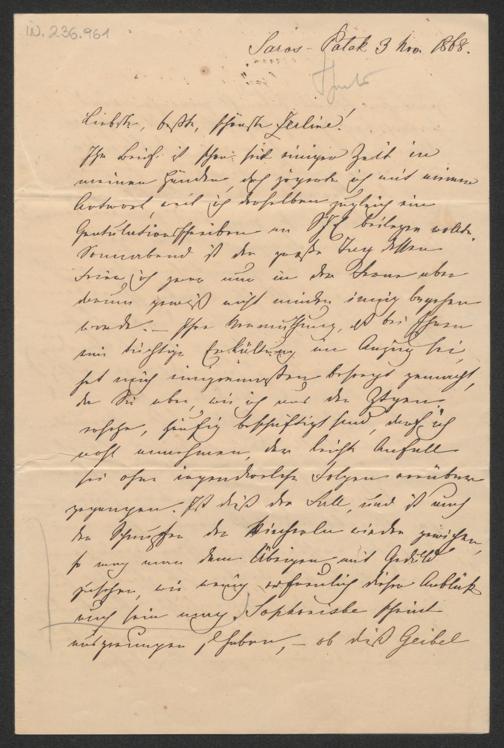 IN. 236.961
Saros-Patak 3 Nov. 1868.
Liebste, beste, schönste Zerline!
Ihr Brief ist schon seit einiger Zeit in
meinen Händen, doch zögerte ich mit meiner
Antwort, weil ich derselben zugleich ein
Gratulationsschreiben an beilegen wollte.
Sonnabend ist der große Tag dessen
Feier ich zwar nur in der Ferne aber
darum gewiß nicht minder innig begehen
werde. – Ihre Vermuthung, daß bei Ihnen
eine tüchtige Erkältung im Anzug sei,
hat mich einigermaßen besorgt gemacht,
da Sie aber, wie ich aus den Ztgen
ersehe, häufig beschäftigt sind, darf ich
wohl annehmen, der leichte Anfall
sei ohne irgendwelche Folgen vorüber
gegangen. Ist diß der Fall, und ist auch
der Schnupfen der wieder gewichen,
so mag man dem Übrigen mit Geduld
zusehen, wie wenig erfreulich dieser Anblick
auch sein mag. Sophonisbe scheint
ausgerungen zu haben, – ob diß Geibel